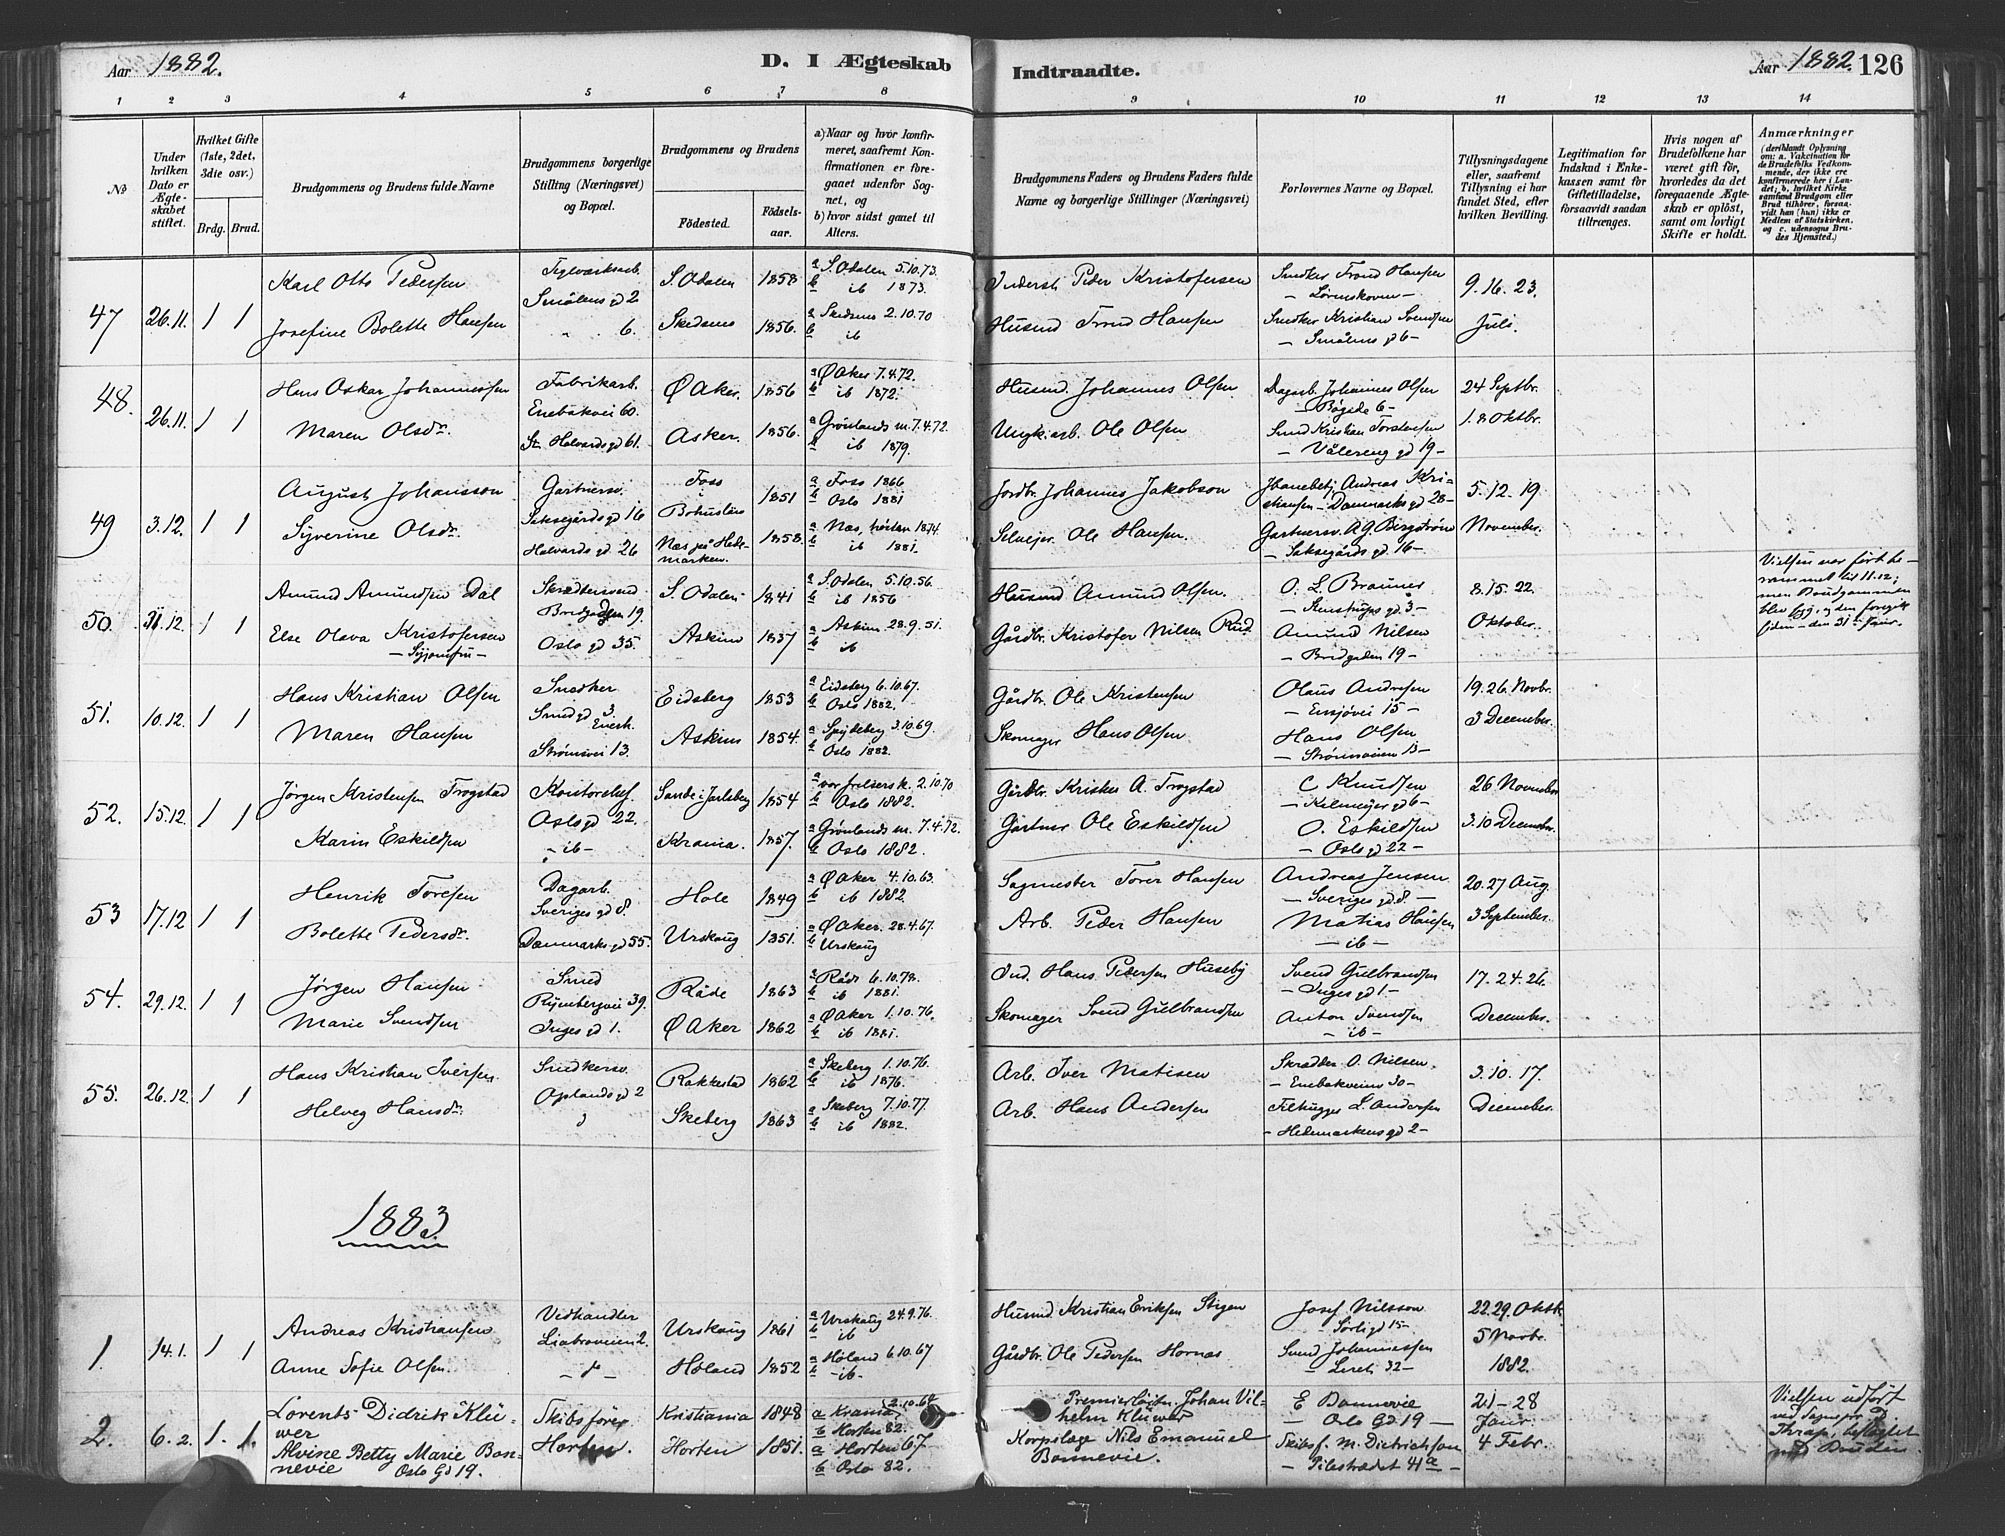 Aar 1882. D. I Ægteskab Indtraadte. Aar 1882. 126
1 2 3 4 5 6 7 8 9 10 11 12 13 14
No
Under hvilken Dato er Ægteskabet stiftet.
Hvilket Gifte (1ste, 2det, 3die osv.)
Brdg. Brud.
Brudgommens og Brudens fulde Navne
Brudgommens borgerlige Stilling (Næringsvei) og Bopæl.
Brudgommens og Brudens
Fødested. Fødsels-aar.
a) Naar og hvor konfirmeret, saafremt Konfirmationen er foregaaet udenfor Sognet, og
b) hvor sidst gaaet til Alters.
Brudgommens Faders og Brudens Faders fulde Navne og borgerlige Stillinger (Næringsvei)
Forlovernes Navne og Bopæl.
Tillysningsdagene eller, saafremt Tillysning ei har fundet Sted, efter hvilken Bevilling.
Legitimation for Indskud i Enkekassen samt for Giftetilladelse, forsaavidt saadan tiltrænges.
Hvis nogen af Brudefolkene har været gift før, hvorledes da det foregaaende Ægteskab er opløst, samt om lovligt Skifte er holdt.
Anmærkninger (deriblandt Oplysning om: a. Vakcination for de Brudefolks Vedkommende, der ikke ere konfirmerede her i Landet; b. hvilket Kirkesamfund Brudgom eller Brud tilhører, forsaavidt han (hun) ikke er Medlem af Statskirken, og c. udensogns Brudes Hjemsted.)
47 26.11. 1 1 Karl Otto Pedersen Teglværksarb. S. Odalen 1858 a S. Odalen 5.10.73. b ib 1873. Inderst Peder Kristofersen Snedker Trond Hansen 9. 16. 23.
Smålens gd 2 - Lørenskoven -
Josefine Bolette Hansen 6. Skedsmo 1856. a Skedsmo 2.10.70 b ib Husmd Trond Hansen Snedker Kristian Svendsen Juli.
- Smålens gd 6 -
48. 26.11. 1 1 Hans Oskar Johannessen Fabrikarb. Ø Aker. 1856 a Ø Aker 7.4.72. b ib 1872. Husmd. Johannes Olsen Dagarb. Johannes Olsen 24 Septbr.
Enebakvei 60. - Bøgade 6 -
Maren Olsdr. St. Halvards gd 61. Asker. 1856. a Grønlands m. 7.4.72. b ib 1879. Ungk. arb. Ole Olsen Smed Kristian Torstensen 1. 8 Oktbr.
- Vålereng gd 19 -
49 3.12. 1 1 August Johansson Gartnersv. Foss i Bohuslän 1851 a Foss 1866 b Oslo 1881 Jordbr. Johannes Jakobson Jbanebetj. Andreas Kristiansen - Danmarks gd 28 - 5. 12. 19
Saksegårds gd 16
Syverine Olsdr. Halvards gd 26 Næs på Hedemarken. 1858. a Næs, høsten 1874. b ib 1881. Selvejer Ole Hansen. Gartnersv. A. G. Bergström November.
- Saksegårds gd 16 -
50. 31.12. 1 1 Amund Amundsen Dal Skrædersvend S. Odalen 1841 a S. Odalen 5.10.56. b ib 1856 Husmd Amund Olsen. O. L. Brauner 8. 15. 22.
Bredgaden 19 - gd 3 -
Else Olava Kristofersen Oslo gd 35. Askim 1837 a Askim 28.9.51. b ib Gårdbr. Kristofer Nilsen Rud. Amund Nilsen Oktober.
- Syjomfru - - Bredgaden 19 -
Vielsen var først berammet til 11.12; men Brudgommen blev syg, og den foregik siden - den 31 -
51. 10.12. 1 1 Hans Kristian Olsen Snedker Eidsberg 1853 a Eidsberg 6.10.67. b Oslo 1882. Gårdbr. Ole Kristensen Olaus Andresen 19. 26. Novbr.
Smed gd 3. Everk. - Ensjøvei 15 -
Maren Hansen Strømsvei 13. Askim 1854. a Spydeberg 3.10.69. b Oslo 1882. Skomager Hans Olsen Hans Olsen 3 December.
- Strømsveien 13 -
52. 15.12. 1 1 Jørgen Kristensen Trogstad Kontorchef. Sande i Jarlsberg 1854 a vor frelsers k. 2.10.70 b Oslo 1882. Gårdbr. Kristen A. Trogstad C Knudsen 26 November
Oslo gd 22. gd 6 -
Karin Eskildsen - ib - Krania. 1857. a Grønlands m. 7.4.72. b Oslo 1882. Gartner Ole Eskildsen O. Eskildsen 3. 10 December.
- Oslo gd 22 -
53 17.12 1 1 Henrik Toresen Dagarb. Hole 1849 a Ø Aker 4.10.63. b ib 1882. Sagmester Torer Hansen Andreas Jensen 20. 27 Aug.
Sveriges gd 8. - Sveriges gd 8. -
Bolette Pedersdr. Danmarks gd 55. Urskoug 1851. a Ø Aker. 28.4.67. b Urskoug Arb. Peder Hansen Matias Hansen 3 September.
- ib -
54. 29.12. 1 1 Jørgen Hansen Smed Råde 1863 a Råde 6.10.78. b ib 1881. Ind. Hans Pedersen Huseby Svend Gulbrandsen 17. 24. 26.
Rynbergvei 39. - Inges gd 1 -
Marie Svendsen Inges gd 1. Ø Aker 1862 a Ø Aker 1.10.76. b ib 1881. Skomager Svend Gulbrandsen Anton Svendsen December.
- ib -
55. 26.12. 1 1 Hans Kristian Iversen Snedkersv. Rakkestad 1862 a Skeberg 1.10.76. b ib 1876. Arb. Iver Matisen Skrædder O. Nilsen. 3. 10. 17.
Oplands gd 2 - Enebakveien 30 -
Helveg Hansdr. Skeberg 1863 a Skeberg 7.10.77. b ib 1882. Arb. Hans Andersen Filhugger L. Andersen December.
- Hedemarkens gd 2 -
1883.
1. 14.1. 1 1 Andreas Kristiansen Vedhandler Urskoug 1861 a Urskoug 24.9.76. b ib Husmd Kristian Eriksen Stigen Josef Nilsson 22. 29. Oktb.
Liabroveien 2. - Sørligd 15 - 5 Novbr.
Anne Sofie Olsen. Høland 1852 a Høland 6.10.67 b - ib - Gårdbr. Ole Pedersen Hornæs Svend Johannessen 1882.
32 -
2. 6.2. 1. 1. Lorents Didrik Klüwer Skibsfører Kristiania 1848 2.10.64 a Krania. b Horten 82. Premierløitn. Johan Vilhelm Klüwer E Bonnevie 21 - 28 Janr.
Horten. - Oslo Gd 19 -
Alvine Betty Marie Bonnevie Oslo Gd 19. Horten 1851. a Horten 67 b Oslo 82. Korpslæge Nils Emanuel Bonnevie. Skibsf. M. Dietrichson 4 Febr.
- Pilestrædet 41a -
Vielsen udført ved Sognepr. Thrap, beslægtet med Bruden.